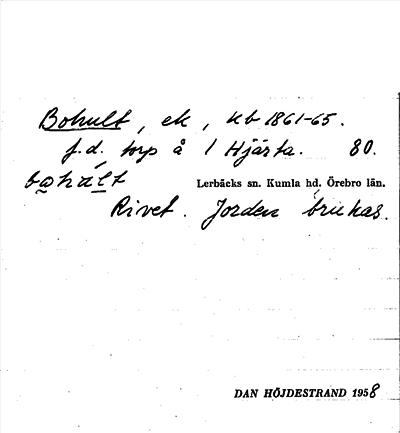 Bohult, ek, kb 1861-65.
f.d. torp å 1 Hjärta. 80.
bohált
Lerbäcks sn. Kumla hd. Örebro län.
Rivet. Jorden brukas.
DAN HÖJDESTRAND 1958